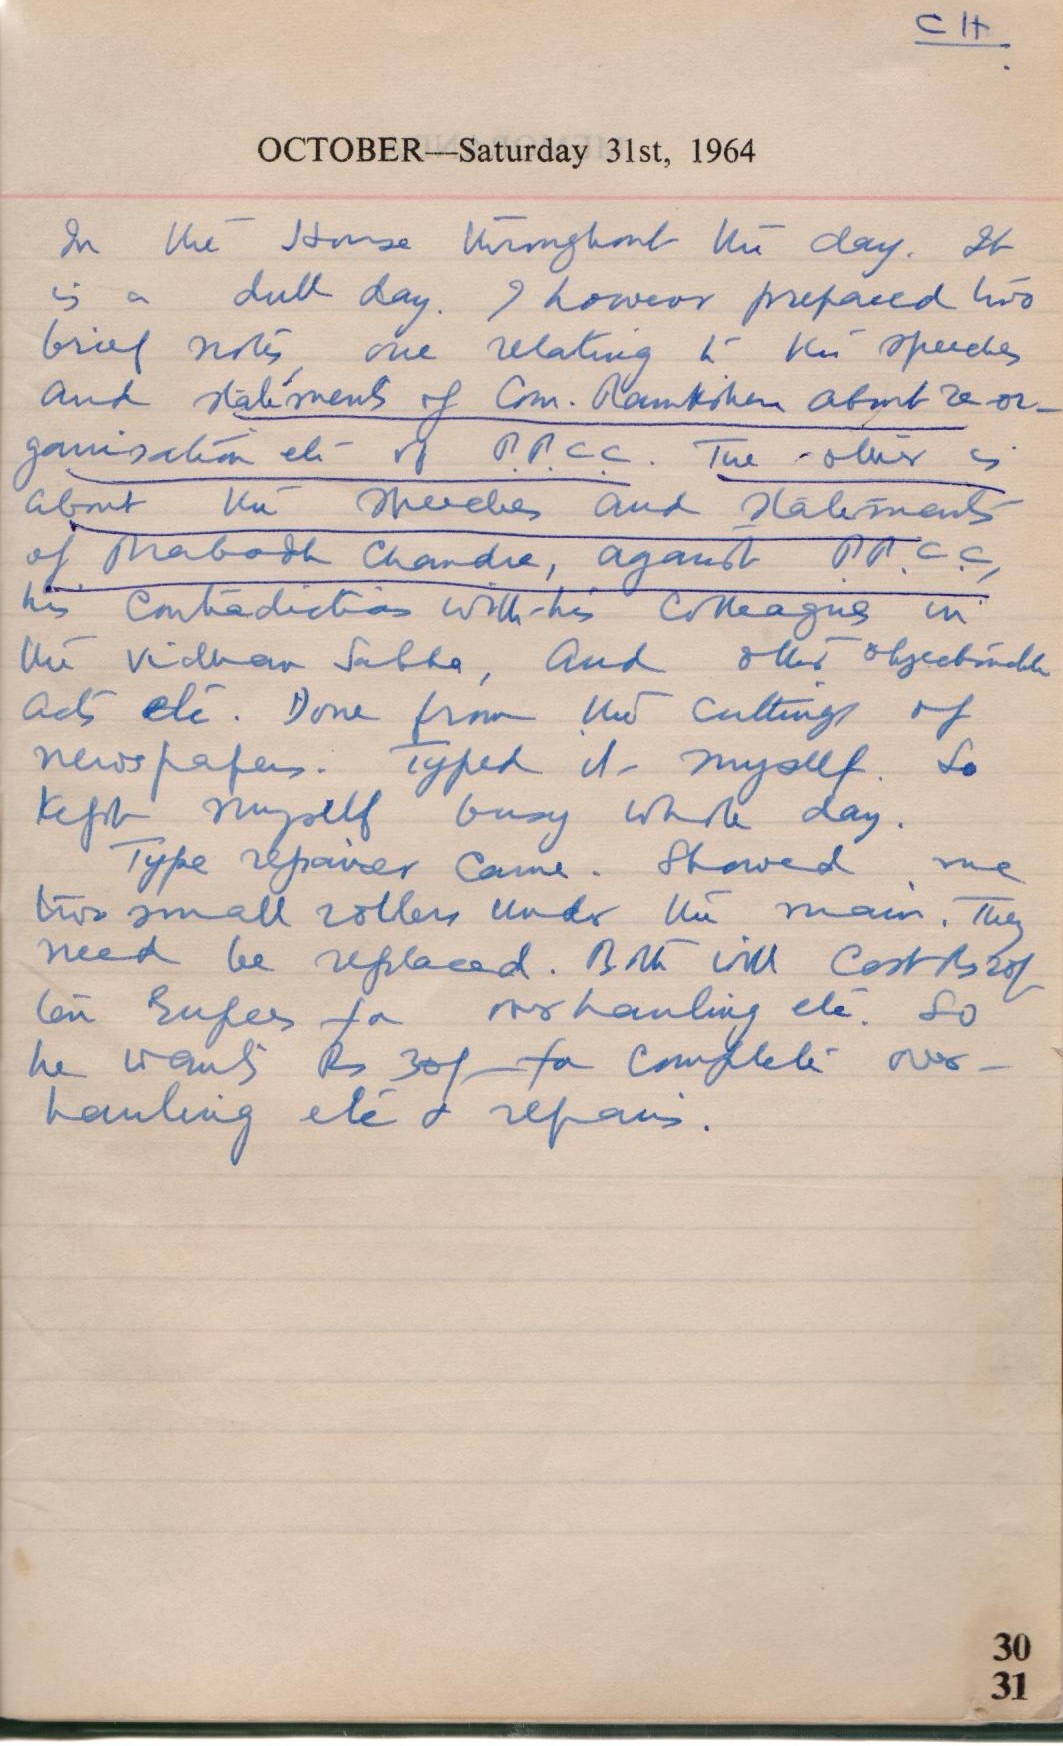 CH.
OCTOBER—Saturday 31st, 1964
In the House throughout the day. It
is a dull day. I however prepared two
brief notes, one relating to the speeches
and statements of Com. Ramkishen about re-or-
ganisation etc of P.P.C.C. The other is
about the speeches and statements
of Prabodh Chandra, against P.P.C.C,
his contradictions with his colleagues in
the Vidhan Sabha, and other objectionable
acts etc. Done from the cuttings of
newspapers. Typed it myself. So
kept myself busy whole day.
Type repairer came. Showed me
two small rollers under the main. They
need be replaced. Both will cost Rs 20/
ten Rupees for overhauling etc. So
he wants Rs 30/- for complete over-
hauling etc & repairs.
30
31